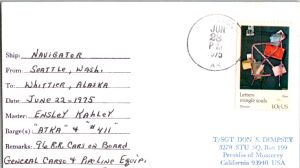 Ship: NAVIGATOR
From: SEATTLE, WASH.
To: WHITTIER, ALASKA
Date: JUNE 22-1975
Master: ENSLEY KAHLEY
Barge(s) "ATKA" & "#411"
Remarks: 96 R.R. CARS ON BOARD
GENERAL CARGO & PIPELINE EQUIP.
JUN
PM
AK
Letters
mingle souls
10c US
T/SGT DON S. DEMPSEY
3278 STU SQ, Box 199
Presidio of Monterey
California 93940